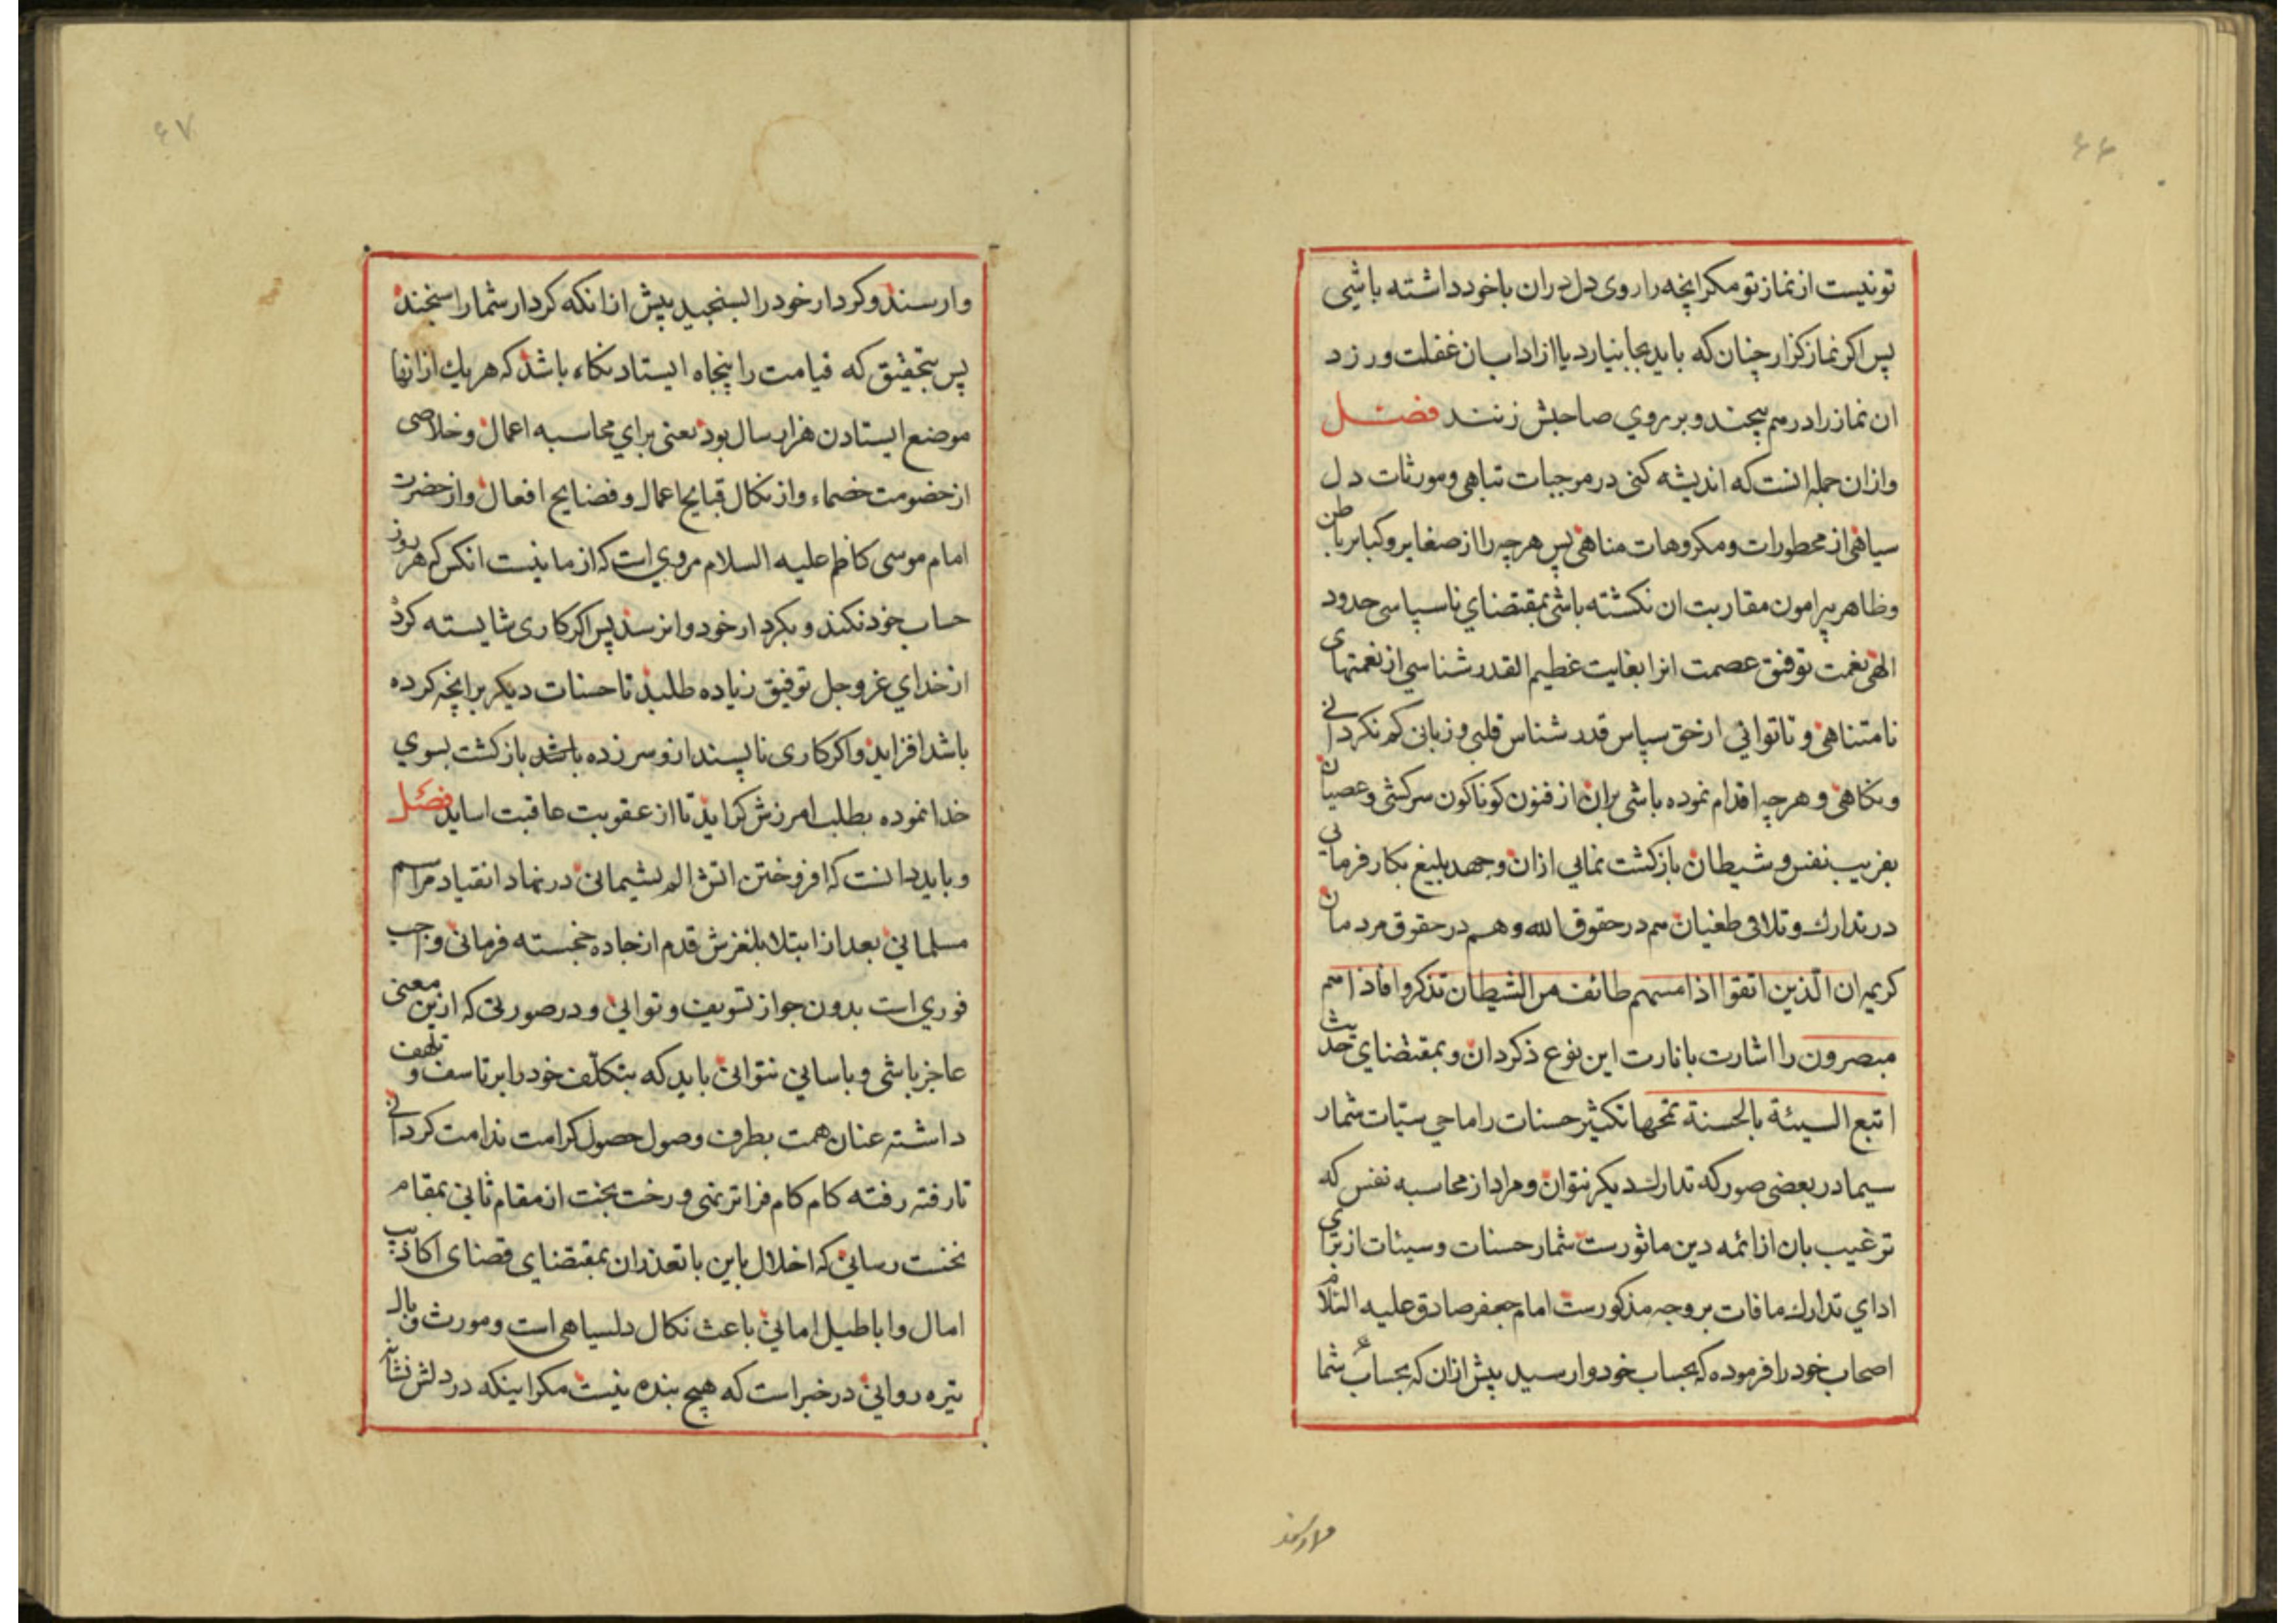 ۶۶
تو نیست از نماز تو مکر انچه را روی دل دران با خود داشته باشی
پس اکر نماز کزار چنان که باید بجا نیارد یا از اداب ان غفلت ورزد
ان نماز را درهم پیچند و بر روی صاحبش زنند فصل
و ازان جمله انست که اندیشه کنی در موجبات تباهی و مورثات دل
سیاهی از محظورات و مکروهات مناهی پس هر چه را از صغایر و کبایر باطن
و ظاهر پیرامون مقاربت ان نکشته باشی بمقتضای ناسپاسی حدود
الهی نعمت توفیق عصمت انرا بغایت عظیم القدر شناسی از نعمتهای
نامتناهی و تا توانی از حق سپاس قدر شناس قلبی و زبانی کم نکردانی
و نکاهی و هر چه اقدام نموده باشی بران از فنون کوناکون سرکشی و عصیان
بفریب نفس و شیطان بازکشت نمایی ازان و جهد بلیغ بکار فرمایی
در تدارك و تلافی طغیان هم در حقوق الله و هم در حقوق مردمان
کریمه ان الّذین اتقوا اذا مسهم طائف من الشیطان تذکروا فاذا هم
مبصرون را اشارت بانارت این نوع ذکر دان و بمقتضای حدیث
اتبع السیئة بالحسنة تمحها تکثیر حسنات را ماحی سیّات شمار
سیما در بعضی صور که تدارك دیکر نتوان و مراد از محاسبه نفس که
ترغیب بان از ائمه دین ماثورست شمار حسنات و سیئات از برای
ادای تدارك ما فات بر وجه مذکورست امام جعفر صادق علیه السّلام
اصحاب خود را فرموده که بحساب خود وارسید پیش ازان که بحساب شما
وارسند
۶۷
وارسند و کردار خود را بسنجید پیش از انکه کردار شما را سنجند
پس بتحقیق که قیامت را پنجاه ایستادنکاه باشد که هر یك از انها
موضع ایستادن هزار سال بود یعنی برای محاسبه اعمال و خلاصی
از خصومت خصماء و از نکال قبایح اعمال و فضایح افعال و از حضرت
امام موسی کاظم علیه السلام مرویست که از ما نیست انکس که هر روز
حساب خود نکند و بکردار خود وانرسد پس اکر کاری شایسته کرد
از خدای عز و جل توفیق زیاده طلبد تا حسنات دیکر بر انچه کرده
باشد افزاید و اکر کاری ناپسند ازو سر زده باشد بازکشت بسوی
خدا نموده بطلب امرزش کراید تا از عقوبت عاقبت اساید فصل
و باید دانست که افروختن اتش الم پشیمانی در نهاد انقیاد مراسم
مسلمانی بعد از ابتلا بلغزش قدم از جاده خجسته فرمانی واجب
فوری است بدون جواز تسویف و توانی و در صورتی که ازین معنی
عاجز باشی و باسانی نتوانی باید که بتکلّف خود را بر تاسف و تلهف
داشته عنان همت بطرف وصول حصول کرامت ندامت کردانی
تا رفته رفته کام کام فراتر نهی و رخت بخت از مقام ثانی بمقام
نخست رسانی که اخلال باین با تعذر ان بمقتضای قصنای اکاذیب
امال و اباطیل امانی باعث نکال دلسیاهی است و مورث وبال
تیره روانی در خبر است که هیچ بنده نیست مکر اینکه در دلش نشانه